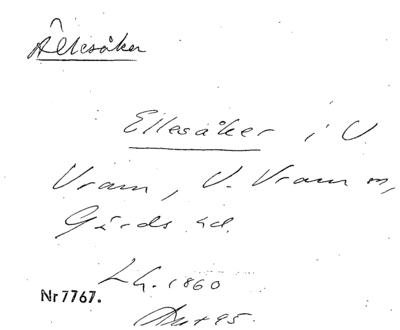 Ällesåker
Ellesåker i V.
Vram, V. Vram sn,
Gärds hd.
LG. 1860
Nr 7767.